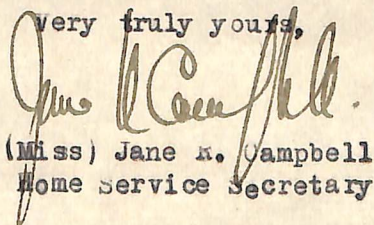 Very truly yours,
Jane R Campbell.
(Miss) Jane R. Campbell
Home Service Secretary